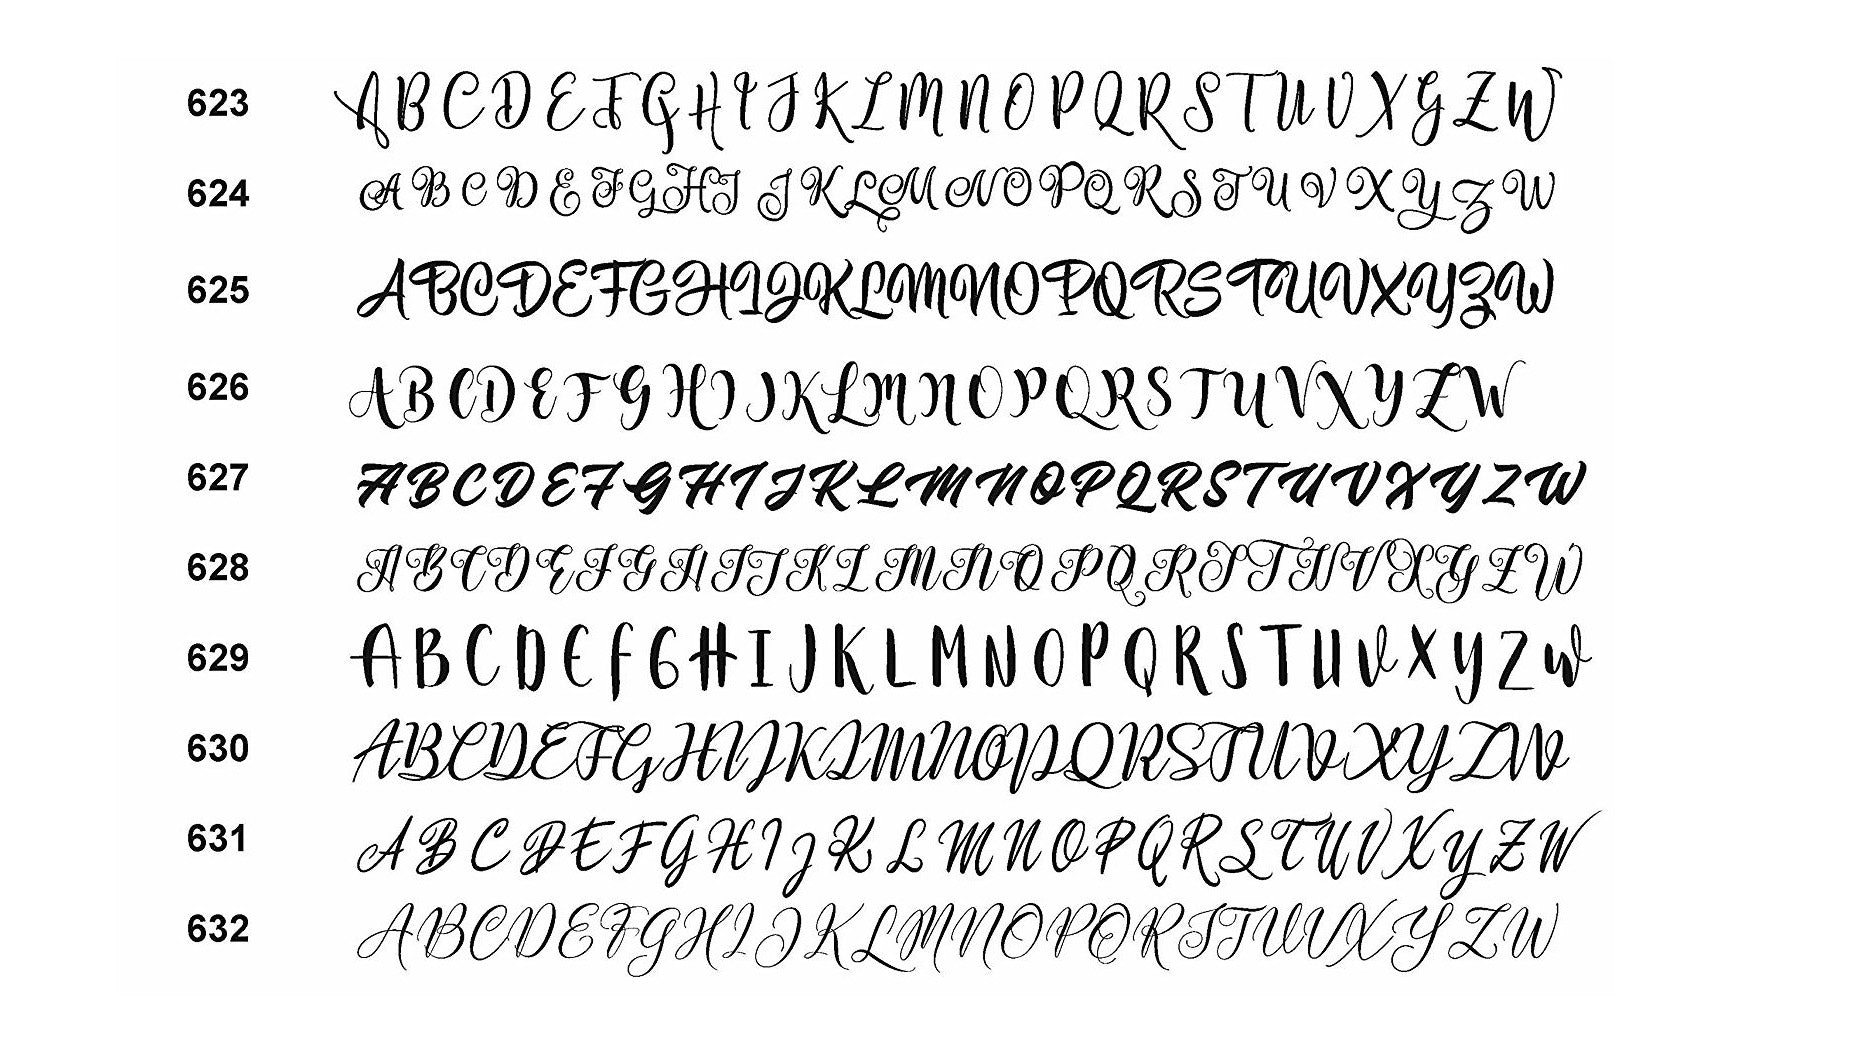 623 A B C D E F G H I J K L M N O P Q R S T U V X Y Z W
624 A B C D E F G H I J K L M N O P Q R S T U V X Y Z W
625 A B C D E F G H I J K L M N O P Q R S T U V X Y Z W
626 A B C D E F G H I J K L M N O P Q R S T U V X Y Z W
627 A B C D E F G H I J K L M N O P Q R S T U V X Y Z W
628 A B C D E F G H I J K L M N O P Q R S T U V X Y Z W
629 A B C D E F G H I J K L M N O P Q R S T U V X Y Z W
630 A B C D E F G H I J K L M N O P Q R S T U V X Y Z W
631 A B C D E F G H I J K L M N O P Q R S T U V X Y Z W
632 A B C D E F G H I J K L M N O P Q R S T U V X Y Z W